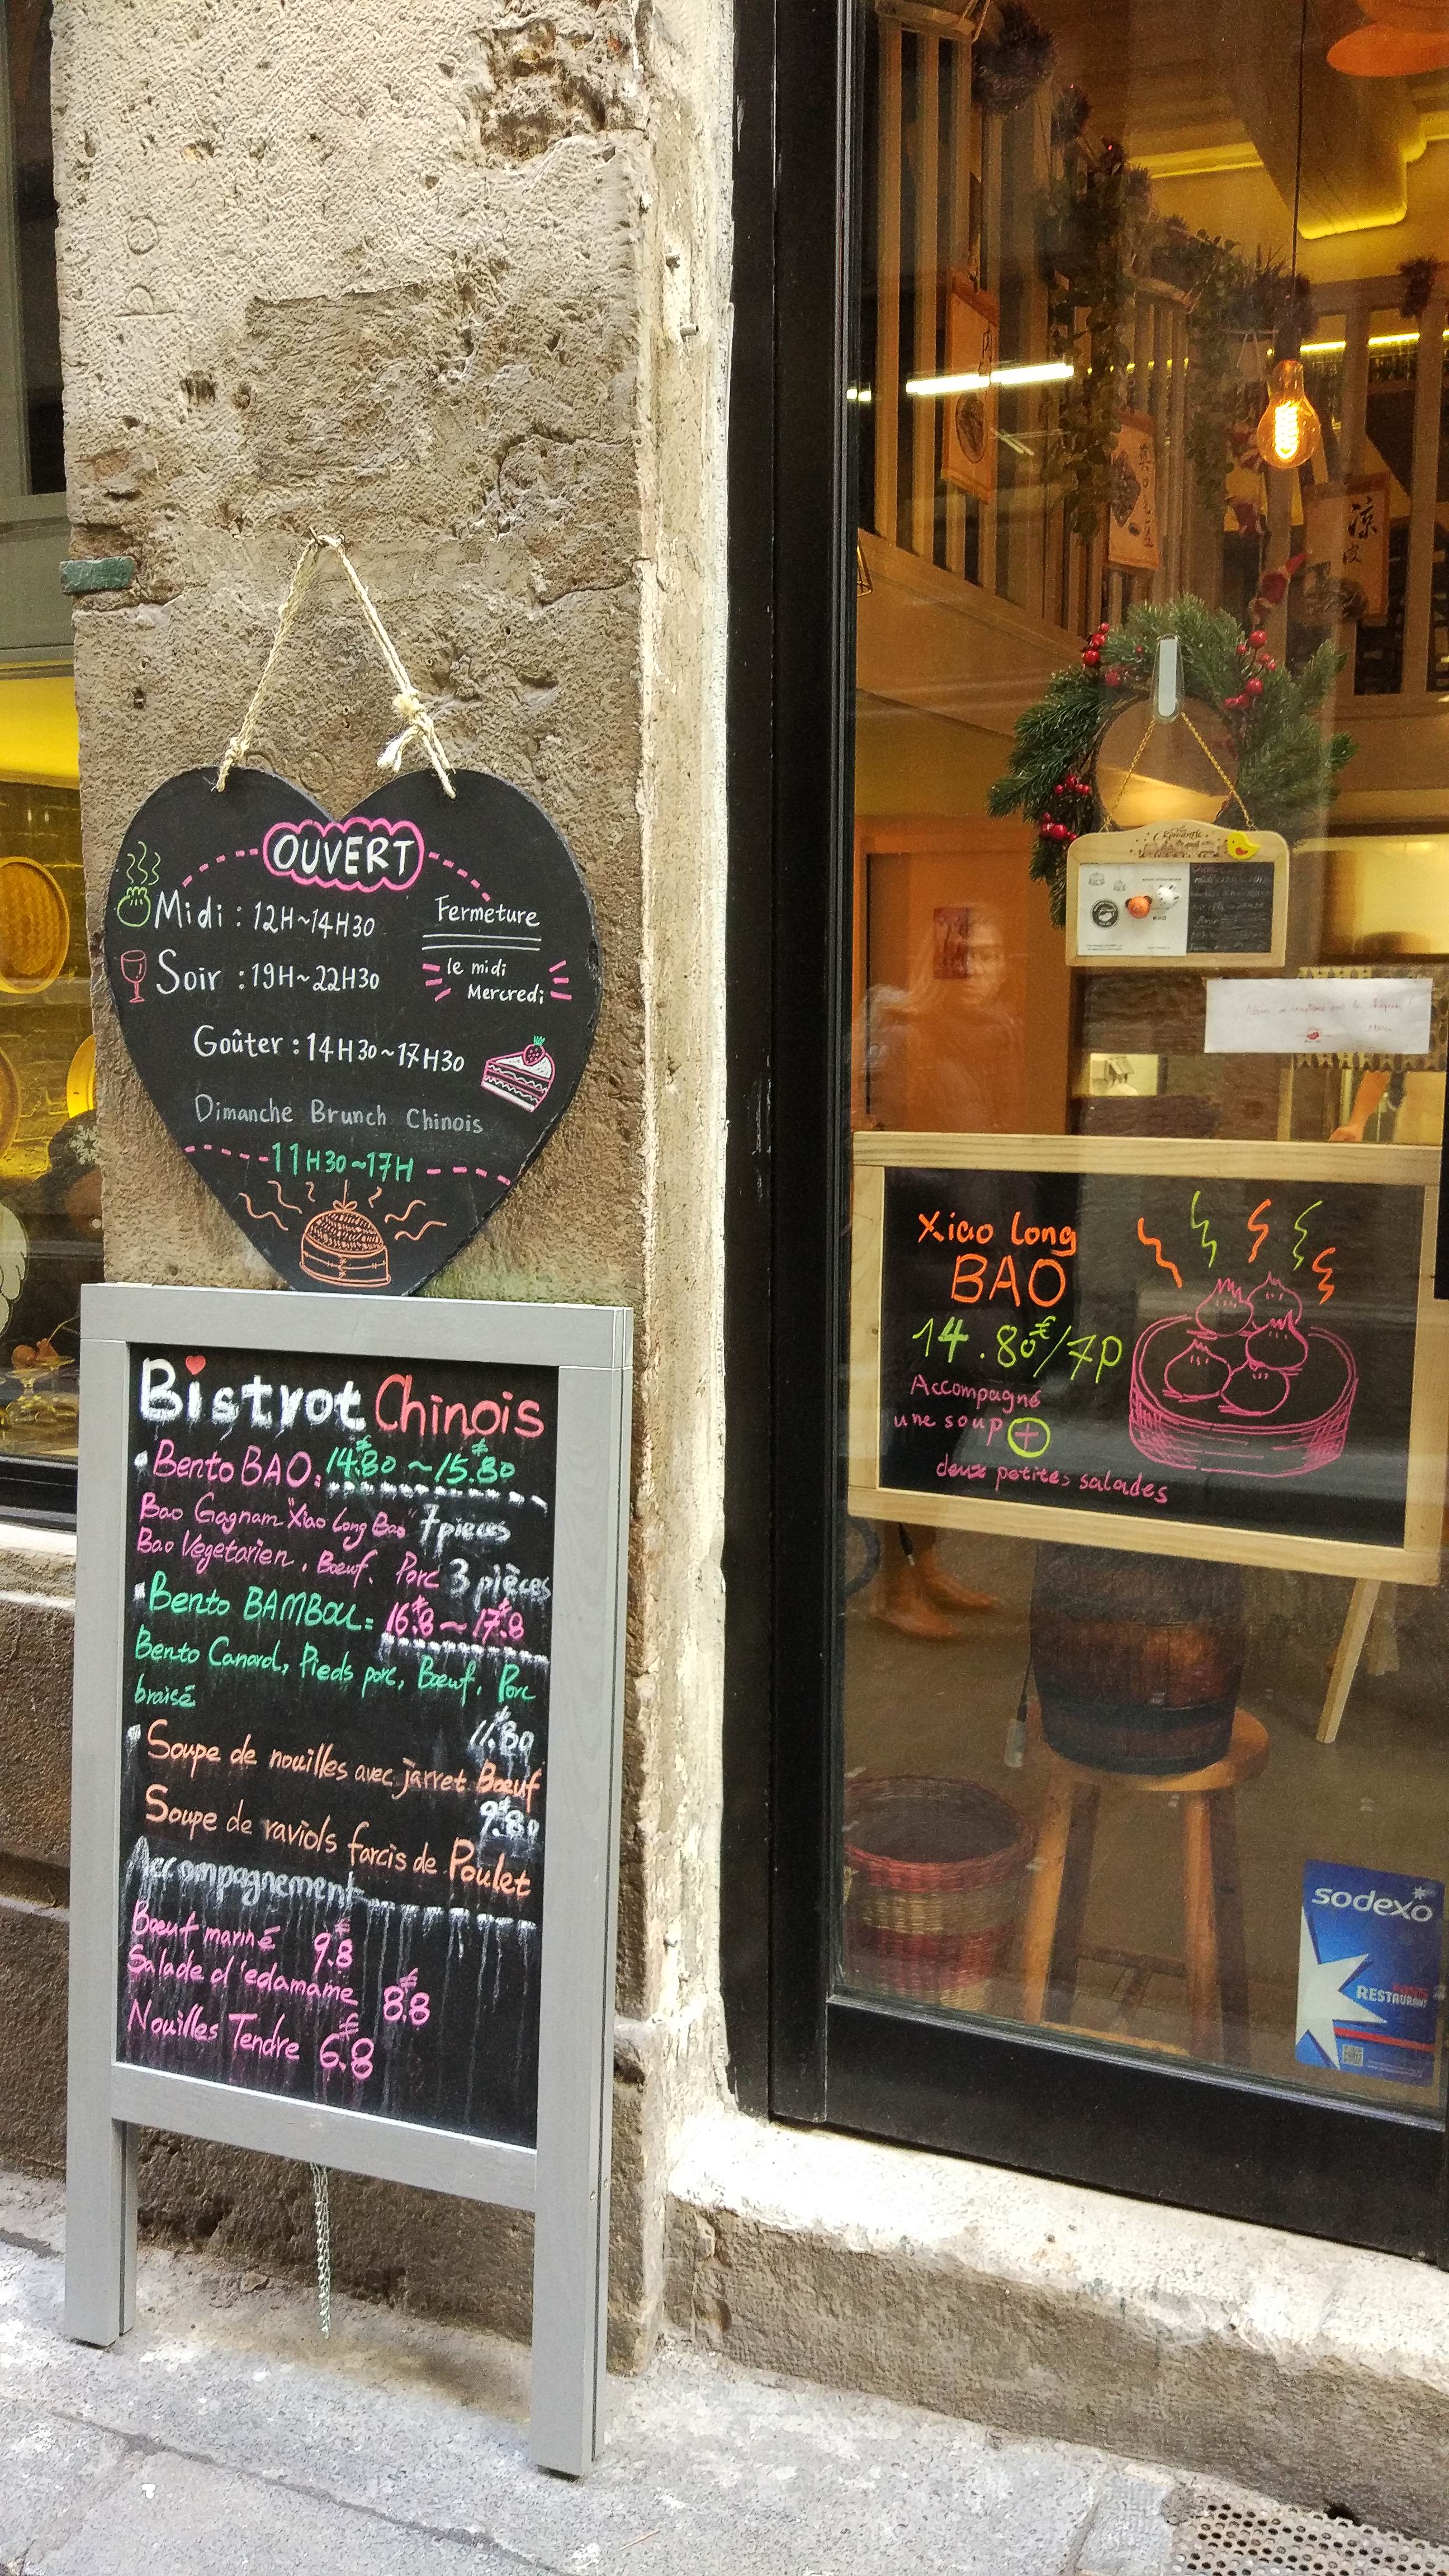 OUVERT
Midi : 12H~14H30
Soir : 19H~22H30
Fermeture
le midi
Mercredi
Goûter : 14H30~17H30
Dimanche Brunch Chinois
11H30~17H
Bistrot Chinois
Bento BAO: 14.80€ ~ 15.80€
Bao Gagnam "Xiao Long Bao" 7 pieces
Bao Vegetarien, Bœuf. Porc 3 pièces
Bento BAMBOU = 16.8€ ~ 17.8€
Bento Canard, Pieds porc, Bœuf. Porc
braisé
11.80€
Soupe de nouilles avec jarret Bœuf
9.80€
Soupe de raviols farcis de Poulet
Accompagnement
Bœuf mariné 9.8€
Salade d'edamame 8.8€
Nouilles Tendre 6.8€
凉
皮
Xiao Long
BAO
14.80€/7p
Accompagné
une soup +
deux petites salades
sodexo
RESTAURANT